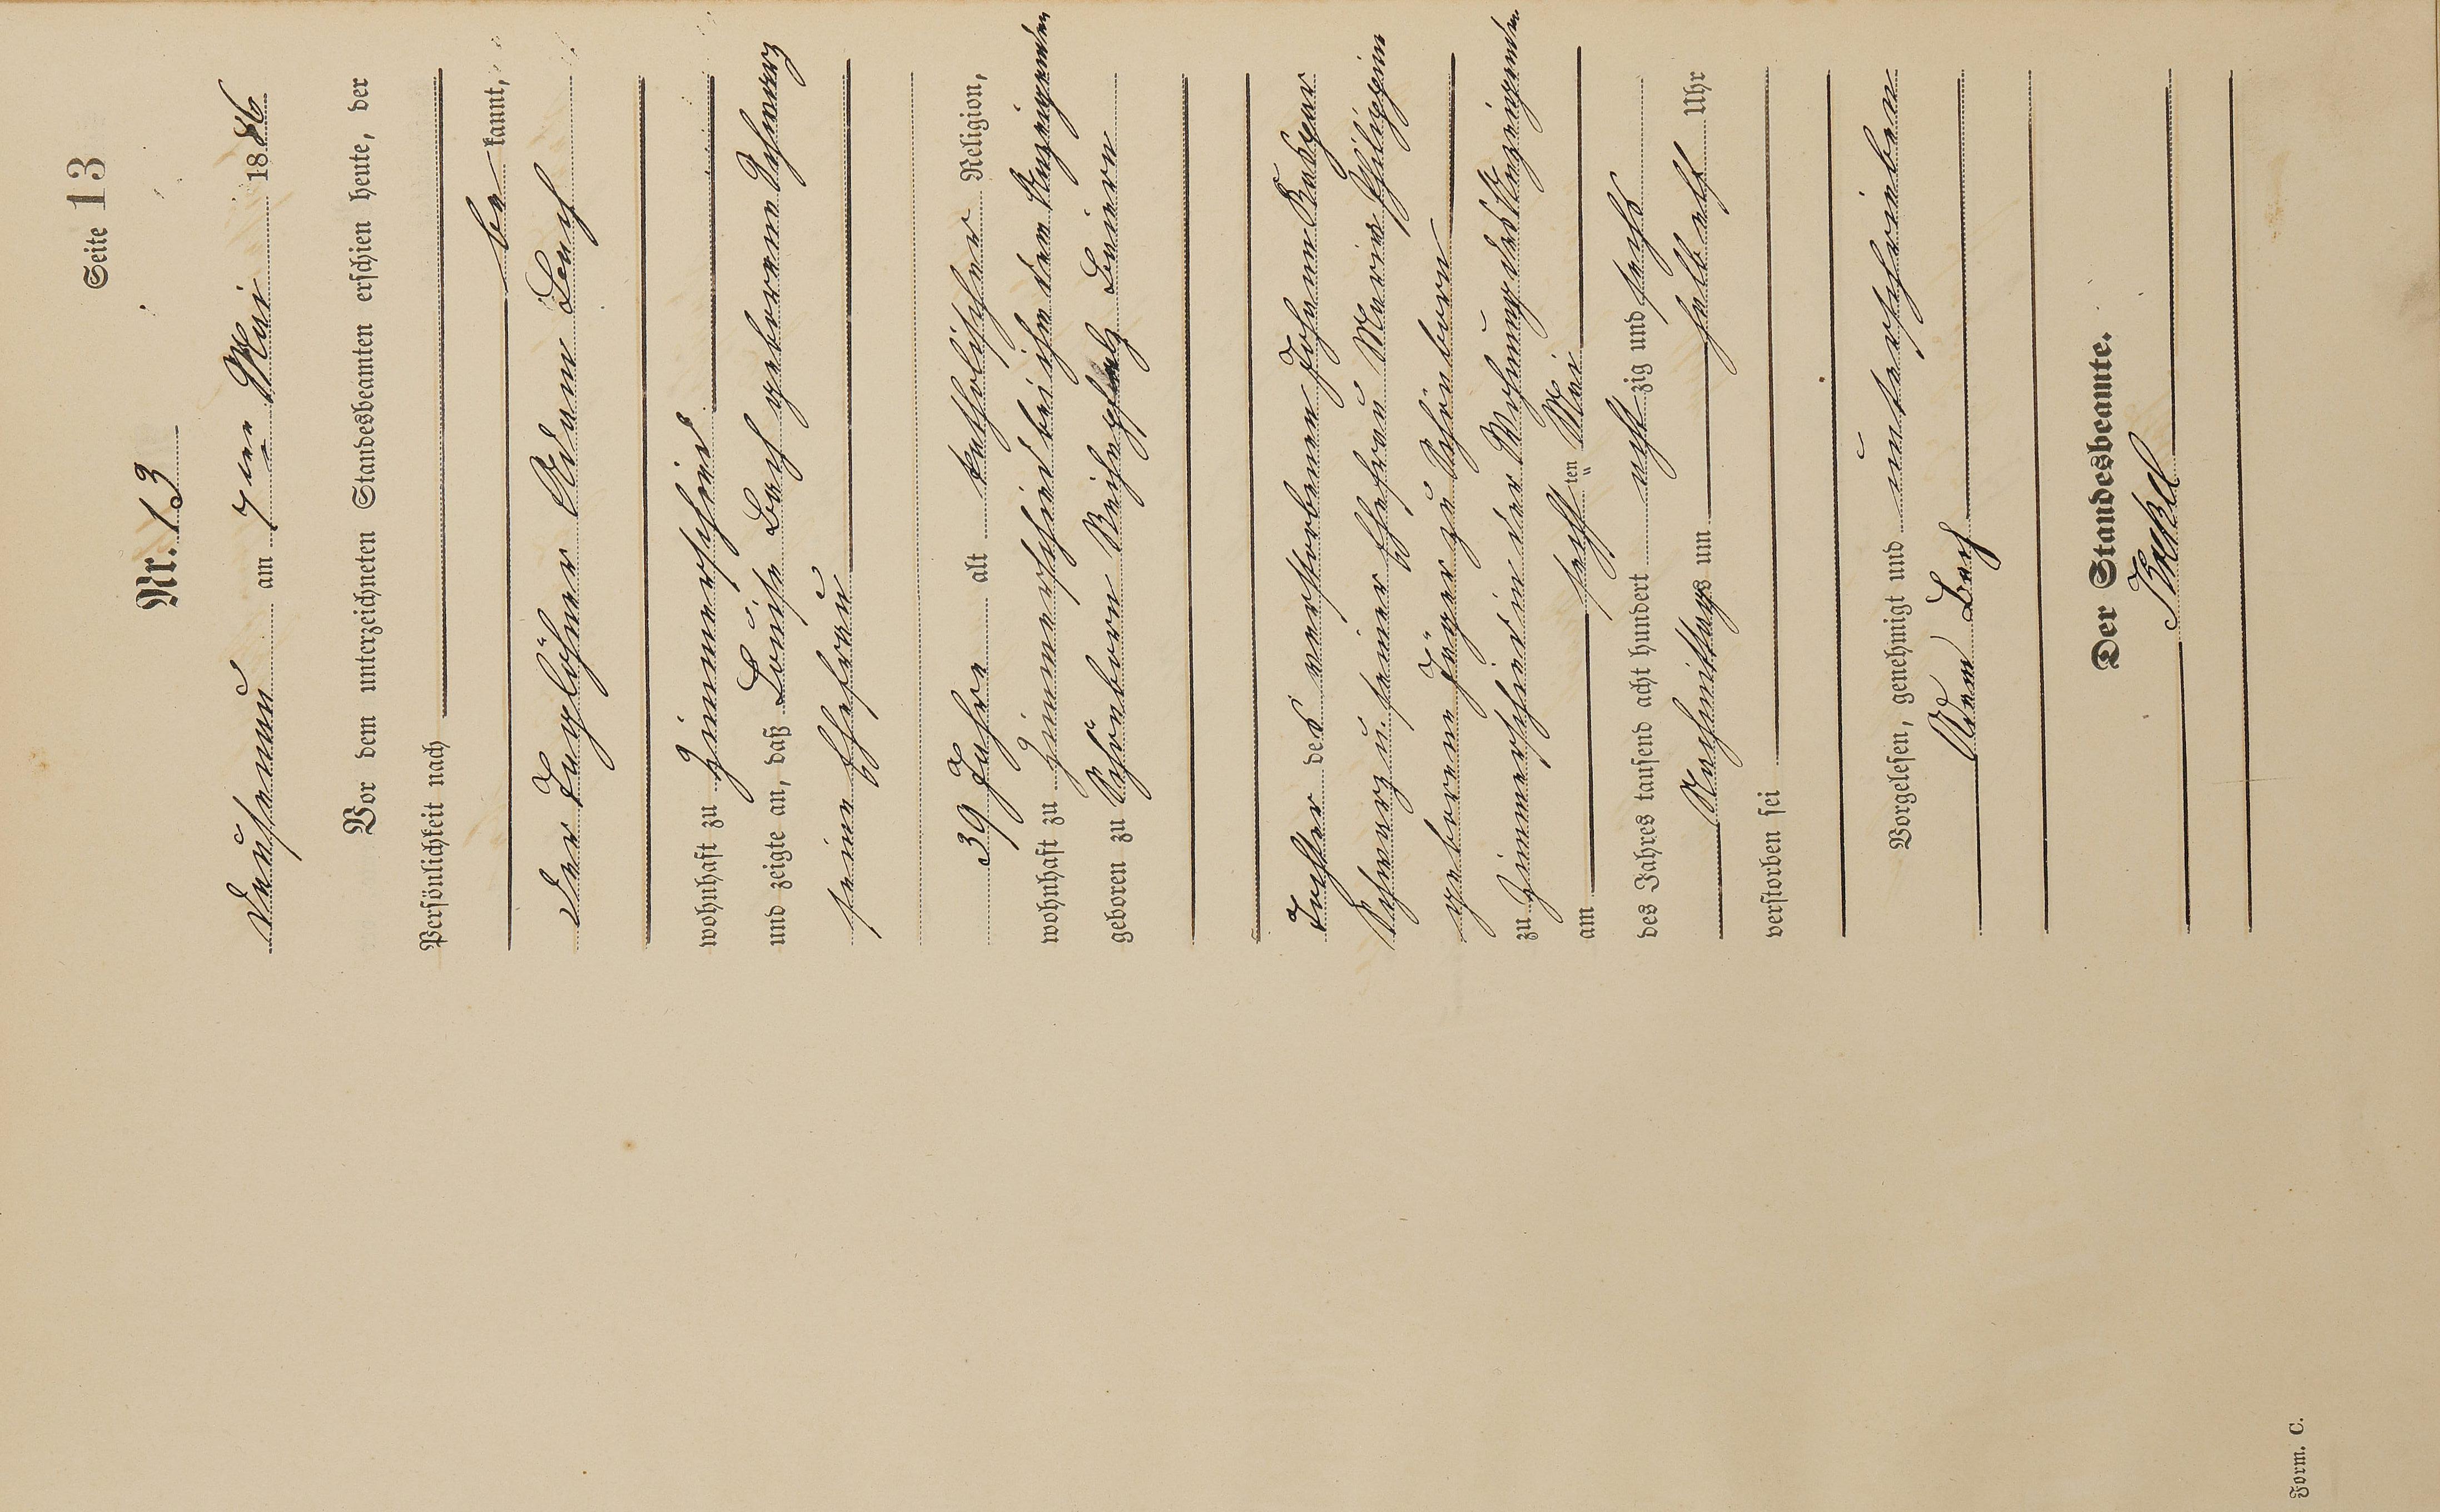 Seite 13
Nr. 13
Dausenau am 7ten Mai 1886
Vor dem unterzeichneten Standesbeamten erschien heute, der
Persönlichkeit nach
be kannt,
der Taglöhner Adam Bach
wohnhaft zu Zimmerschied
und zeigte an, daß Louise Bach geborene Schwarz
seine Ehefrau
39 Jahre alt katholischer Religion,
wohnhaft zu Zimmerschied bei ihm dem Anzeigenden
geboren zu Schönborn Rheinpfalz Baiern
Tochter des verstorbenen Johann Caspar
Schwarz u. seiner Ehefrau Maria Philippin
geborene Jäger zu Schönborn
zu Zimmerschied in der Wohnung des Anzeigenden
am sechsten Mai
des Jahres tausend acht hundert acht zig und sechs
Nachmittags um halb acht Uhr
verstorben sei
Vorgelesen, genehmigt und unterschrieben
Adam Bach
Der Standesbeamte.
Form. C.